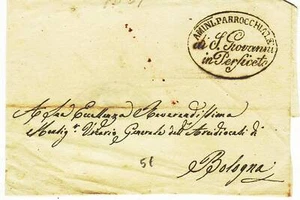 AMINI. PARROCCHIALE
di S. Giovanni
in Persiceto
A Sua Eccellenza Reverendissima
Vicario Generale dell' Arcidiocesi di
51
Bologna